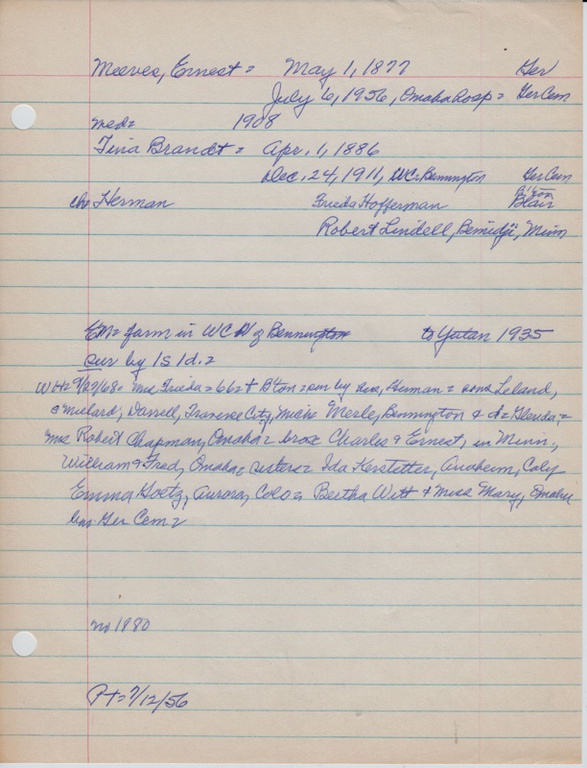 Meeves, Ernest = May 1, 1877 Ger
July 6, 1956, Omaha hosp = Ger Cem
med = 1908
Tina Brandt = Apr. 1, 1886
Dec. 24, 1911, WC = Bennington Ger Cem
ch = Herman Frieda Hofferman B'ton Blair
Robert Lindell, Bemidji, Minn
EM = farm in WC N of Bennington to Yutan 1935
sur by 1s 1d. =
= Mrs Freida = 66 = + B'ton = sur by hus, Herman = sons Leland,
Milard, Darrell, Traverse City, Mich = Merle, Bennington & d = Glenda =
Mrs Robert Chapman, Omaha = bros Charles & Ernest, in Minn.,
William & Fred, Omaha = sisters = Ida Kerstetter, Anaheim, Caly
Emma Goetz, Aurora, Colo = Bertha Witt & Miss Mary, Omaha
Ger Cem =
no 1880
Pt = 7/12/56